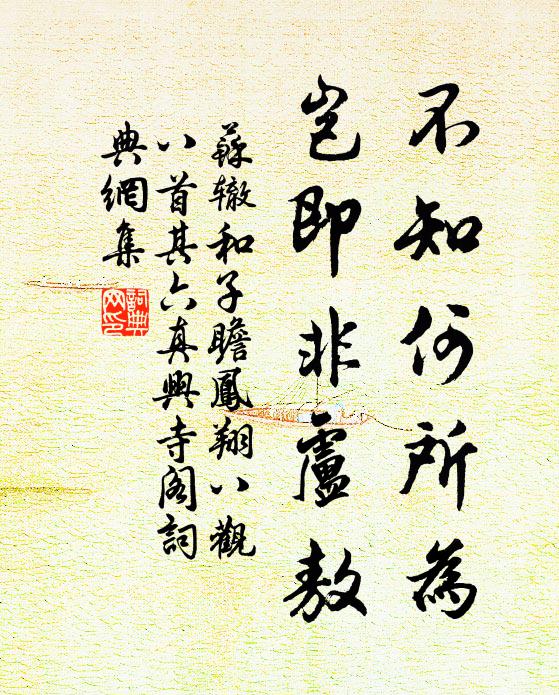 不知何所為
豈即非盧敖
蘇辙和子瞻鳳翔八觀
八首其六真興寺阁詞
典網集
詞典网印